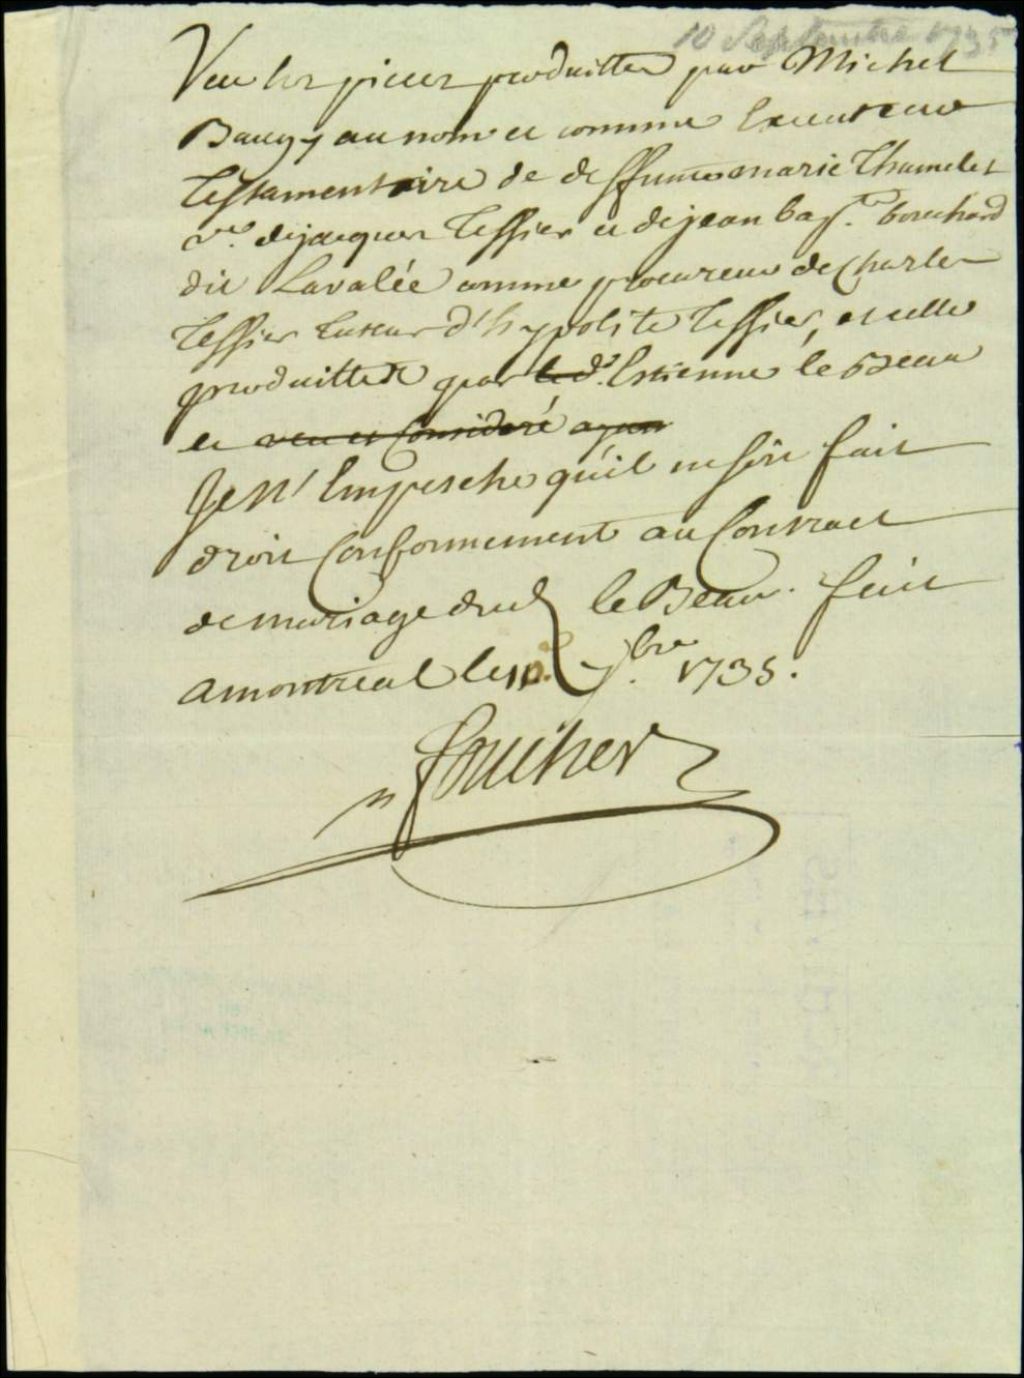 10 Septembre 1735
Veu les pieces produittes par Michel
Baugy au nom et comme Executeur
testamentaire de deffunte marie Thumelet
ve. de jacques Tessier et de jean bapte. bouchard
dit Lavalée comme procureur de Charles
Tessier tuteur d'hypolite Tessier, et celles
produittes par le d. Estienne le Beau
et veu et Consideré ayen
Je N'Empesche qu'il ne soit fait
droit Conformement au Contract
de mariage dud le Beau. fait
a montreal le 10. 7bre. 1735.
foucher